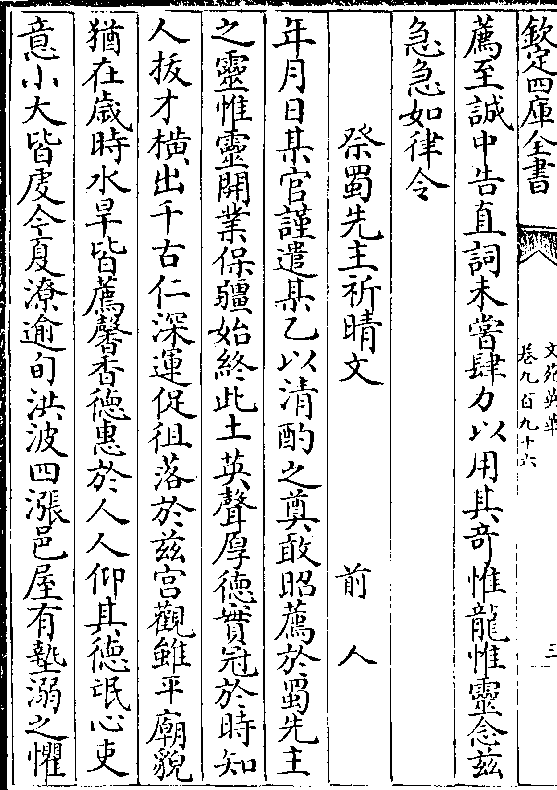 欽定四庫全書
文苑英華
卷九百九十六
三
薦至誠中告直詞未嘗肆力以用其奇惟龍惟靈念兹
急急如律令
祭蜀先主祈晴文 前人
年月日某官謹遣某乙以清酌之奠敢昭薦於蜀先主
之靈惟靈開業保疆始終此土英聲厚德實冠於時知
人拔才横出千古仁深運促徂落於兹宫觀雖平廟貌
猶在歲時水旱皆薦馨香德惠於人人仰其德氓心吏
意小大皆虔今夏潦逾旬洪波四漲邑屋有墊溺之懼